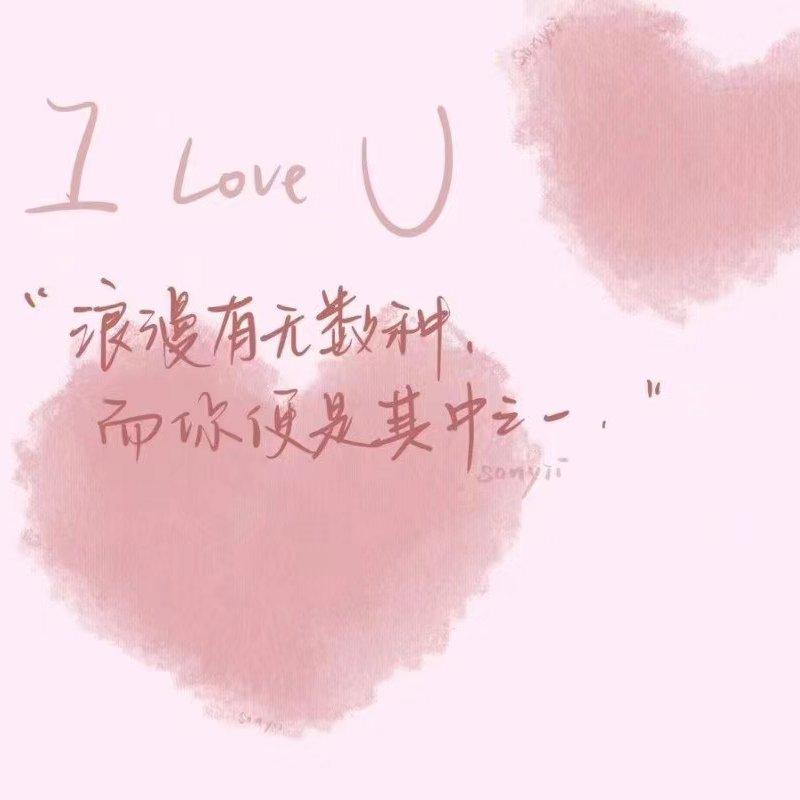 sonyii
I Love U
“浪漫有无数种.
而你便是其中之一.”
sonyii
sonyii